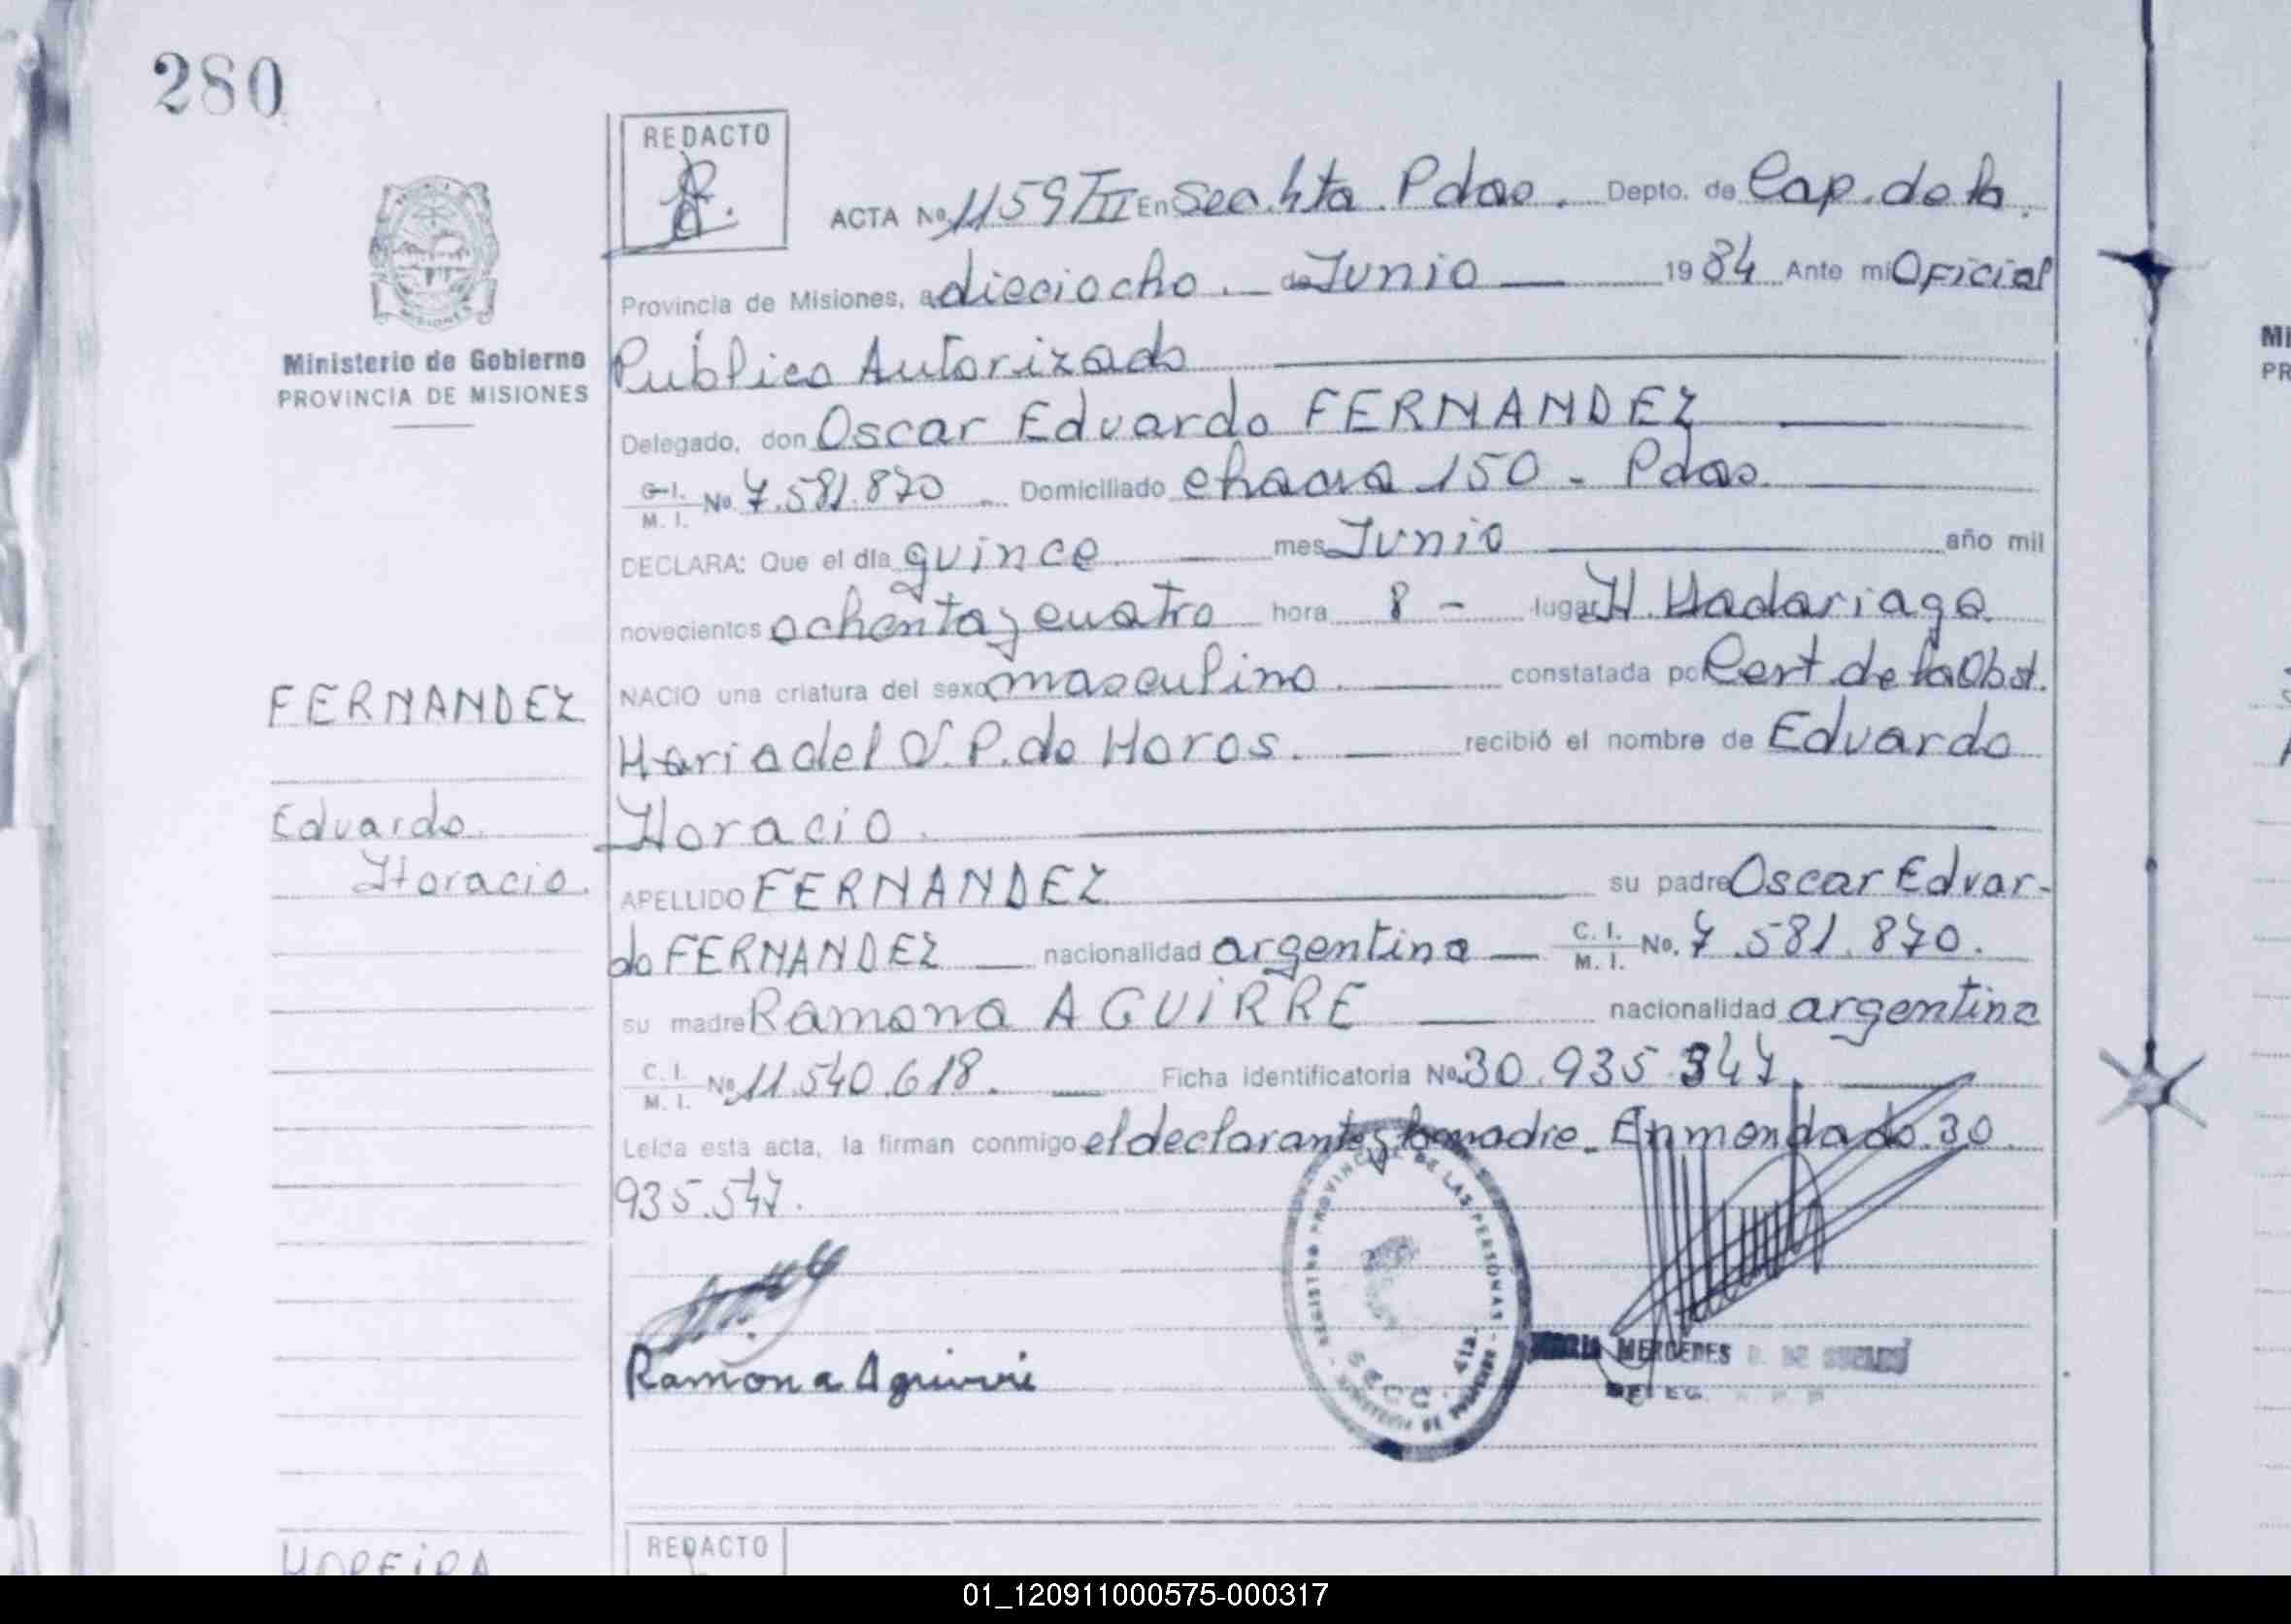 280
REDACTO
ACTA No. 1159/TII En Sec. 4ta. Pdas. Depto. de Cap. de la
Provincia de Misiones, a dieciocho. de Junio 1984 Ante mi Oficial
Ministerio de Gobierno
PROVINCIA DE MISIONES
Público Autorizado
Delegado, don Oscar Eduardo FERNANDEZ
C.I. M.I. No. 7.581.870 Domiciliado chacra 150 - Pdas.
DECLARA: Que el día quince mes Junio año mil
novecientos ochenta y cuatro hora 8 - lugar H. Madariaga
FERNANDEZ
NACIO una criatura del sexo masculino. constatada por Cert. de la Obst.
Maria del P. de Moros. recibió el nombre de Eduardo
Eduardo
Horacio.
Horacio.
APELLIDO FERNANDEZ su padre Oscar Eduar-
do FERNANDEZ nacionalidad argentina C.I. M.I. No. 7.581.870.
su madre Ramona AGUIRRE nacionalidad argentina
C.I. M.I. No. 11.540.618. Ficha identificatoria No. 30.935.547
Leída esta acta, la firman conmigo el declarante y la madre. Enmendado 30.
935.547.
REGISTRO PROVINCIAL DE LAS PERSONAS
SECC. 4ta.
MINISTERIO DE GOBIERNO
Ramona Aguirre
MARIA MERCEDES DE
DELEG.
MOREIRA
REDACTO
MI
PR
01_120911000575-000317